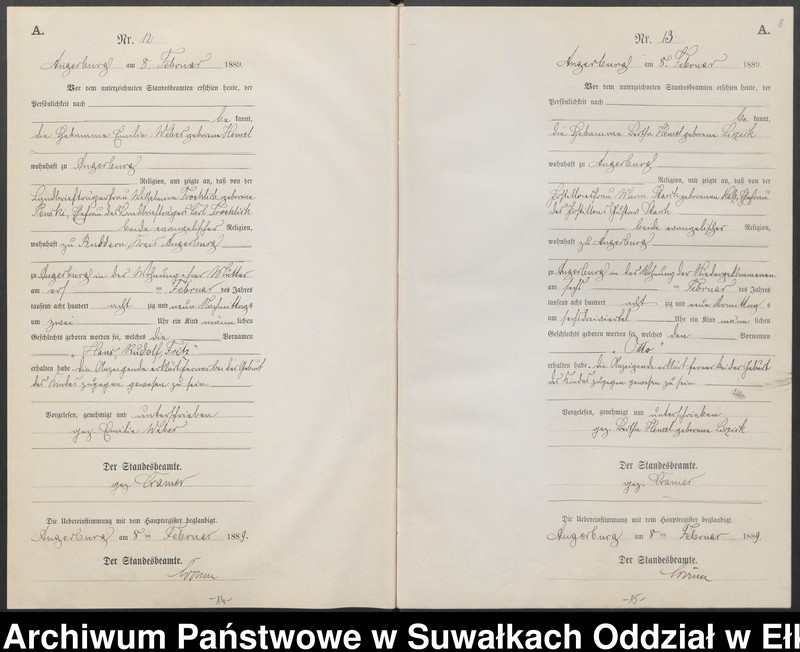 A.
Nr. 12
Angerburg am 8. Februar 1889.
Vor dem unterzeichneten Standesbeamten erschien heute, der
Persönlichkeit nach
be kannt,
die Hebamme Emilie Weber geborene Hensel
wohnhaft zu Angerburg
Religion, und zeigte an, daß von der
Landbriefträgerfrau Wilhelmine Froehlich geborene
Ehefrau des Landbriefträgers Carl Froehlich
beide evangelischer Religion,
wohnhaft zu Kreis Angerburg
zu Angerburg in der Wohnung ihrer Mutter
am ten Februar des Jahres
tausend acht hundert acht zig und neun Nachmittags
um zwei Uhr ein Kind männ lichen
Geschlechts geboren worden sei, welches die Vornamen
„Hans Rudolf Fritz“
erhalten habe. die Anzeigende erklärt ferner bei der Geburt
des Kindes zugegen gewesen zu sein
Vorgelesen, genehmigt und unterschrieben
gez. Emilie Weber
Der Standesbeamte.
gez. Cramer
Die Uebereinstimmung mit dem Hauptregister beglaubigt.
Angerburg am 8 ten Februar 1889.
Der Standesbeamte.
-14-
8
A.
Nr. 13
Angerburg am 8. Februar 1889.
Vor dem unterzeichneten Standesbeamten erschien heute, der
Persönlichkeit nach
be kannt,
die Hebamme Bertha Hensel geborene
wohnhaft zu Angerburg
Religion, und zeigte an, daß von der
Postillonsfrau geborenen Ehefrau
des Postillon Gustav
beide evangelischer Religion,
wohnhaft zu Angerburg
zu Angerburg in der Wohnung der Niedergekommenen
am ten Februar des Jahres
tausend acht hundert acht zig und neun Vormittag s
um sechsdreiviertel Uhr ein Kind männ lichen
Geschlechts geboren worden sei, welches den Vornamen
„Otto“
erhalten habe. die Anzeigende erklärt ferner bei der Geburt
des Kindes zugegen gewesen zu sein
Vorgelesen, genehmigt und unterschrieben
gez. Bertha Hensel geborene
Der Standesbeamte.
gez. Cramer
Die Uebereinstimmung mit dem Hauptregister beglaubigt.
Angerburg am 8 ten Februar 1889.
Der Standesbeamte.
-15-
Archiwum Państwowe w Suwałkach Oddział w Ełk